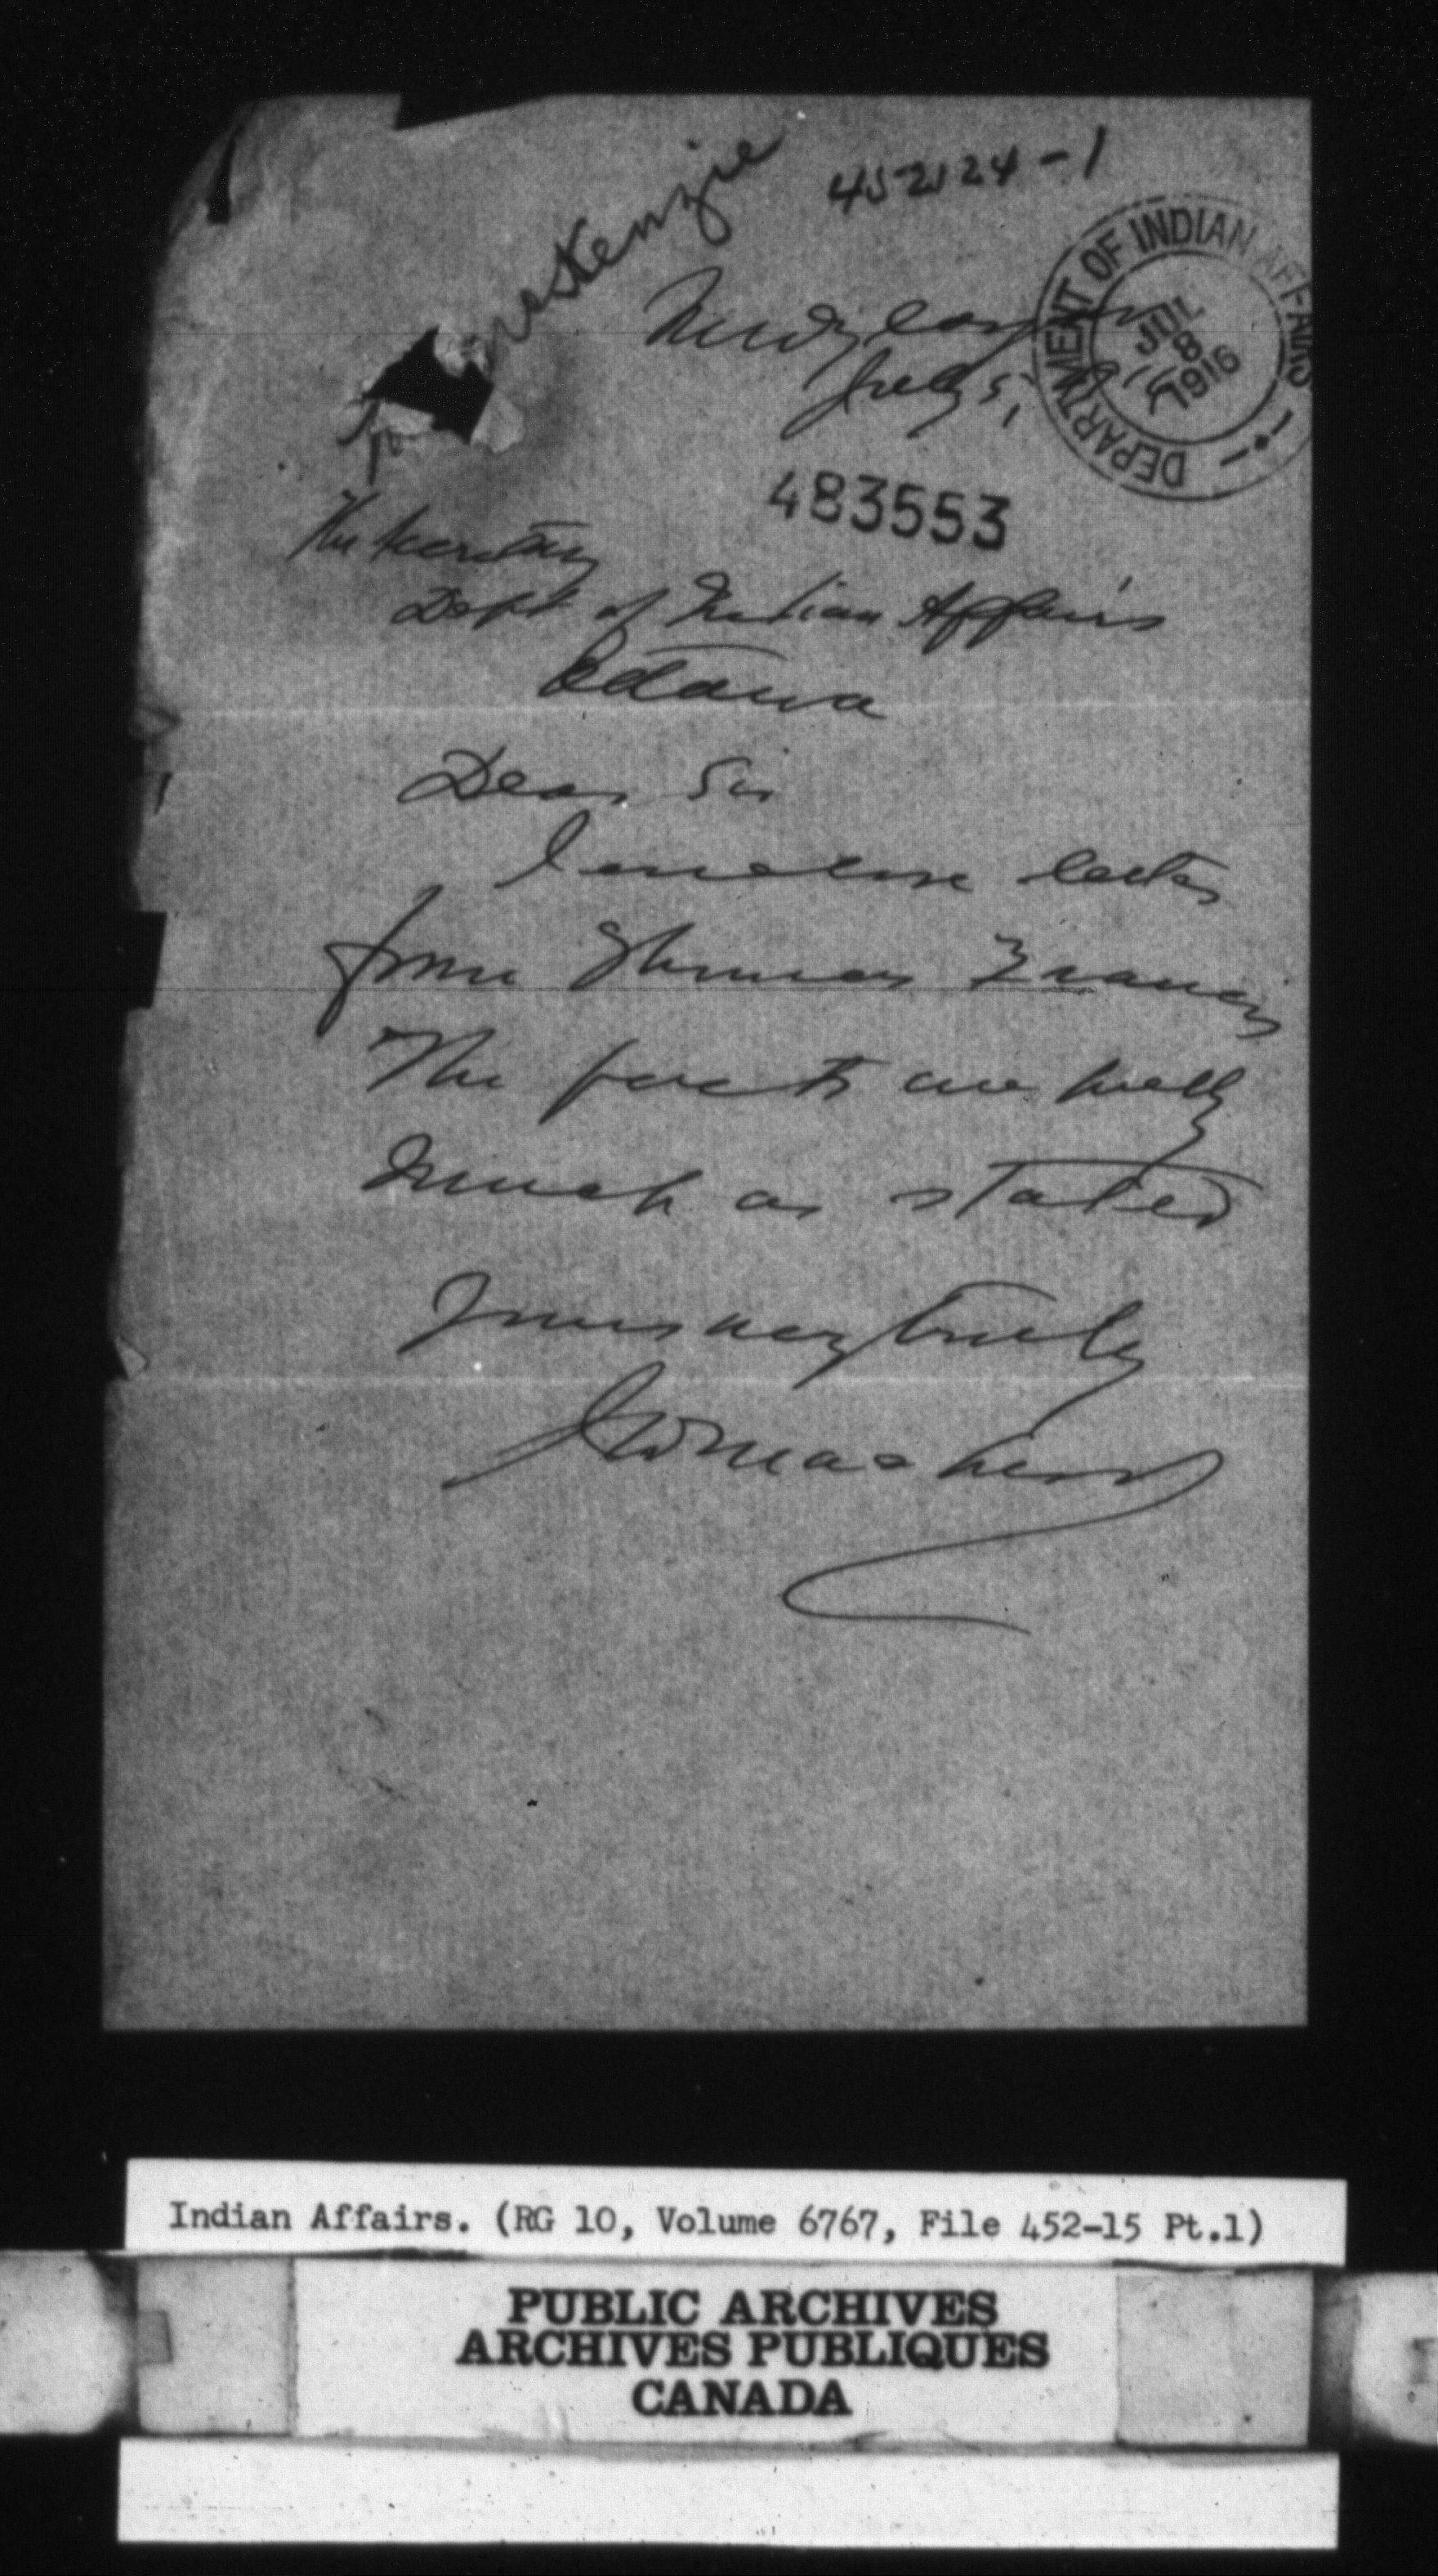 452124-1
McKenzie
DEPARTMENT OF INDIAN AFFAIRS
JUL
8
1916
July 5,
483553
The Secretary
Dept of Indian Affairs
Ottawa
Dear Sir
I enclose letter
from Thomas Francis
The facts are pretty
much as stated
Yours very truly
Indian Affairs. (RG 10, Volume 6767, File 452-15 Pt.1)
PUBLIC ARCHIVES
ARCHIVES PUBLIQUES
CANADA